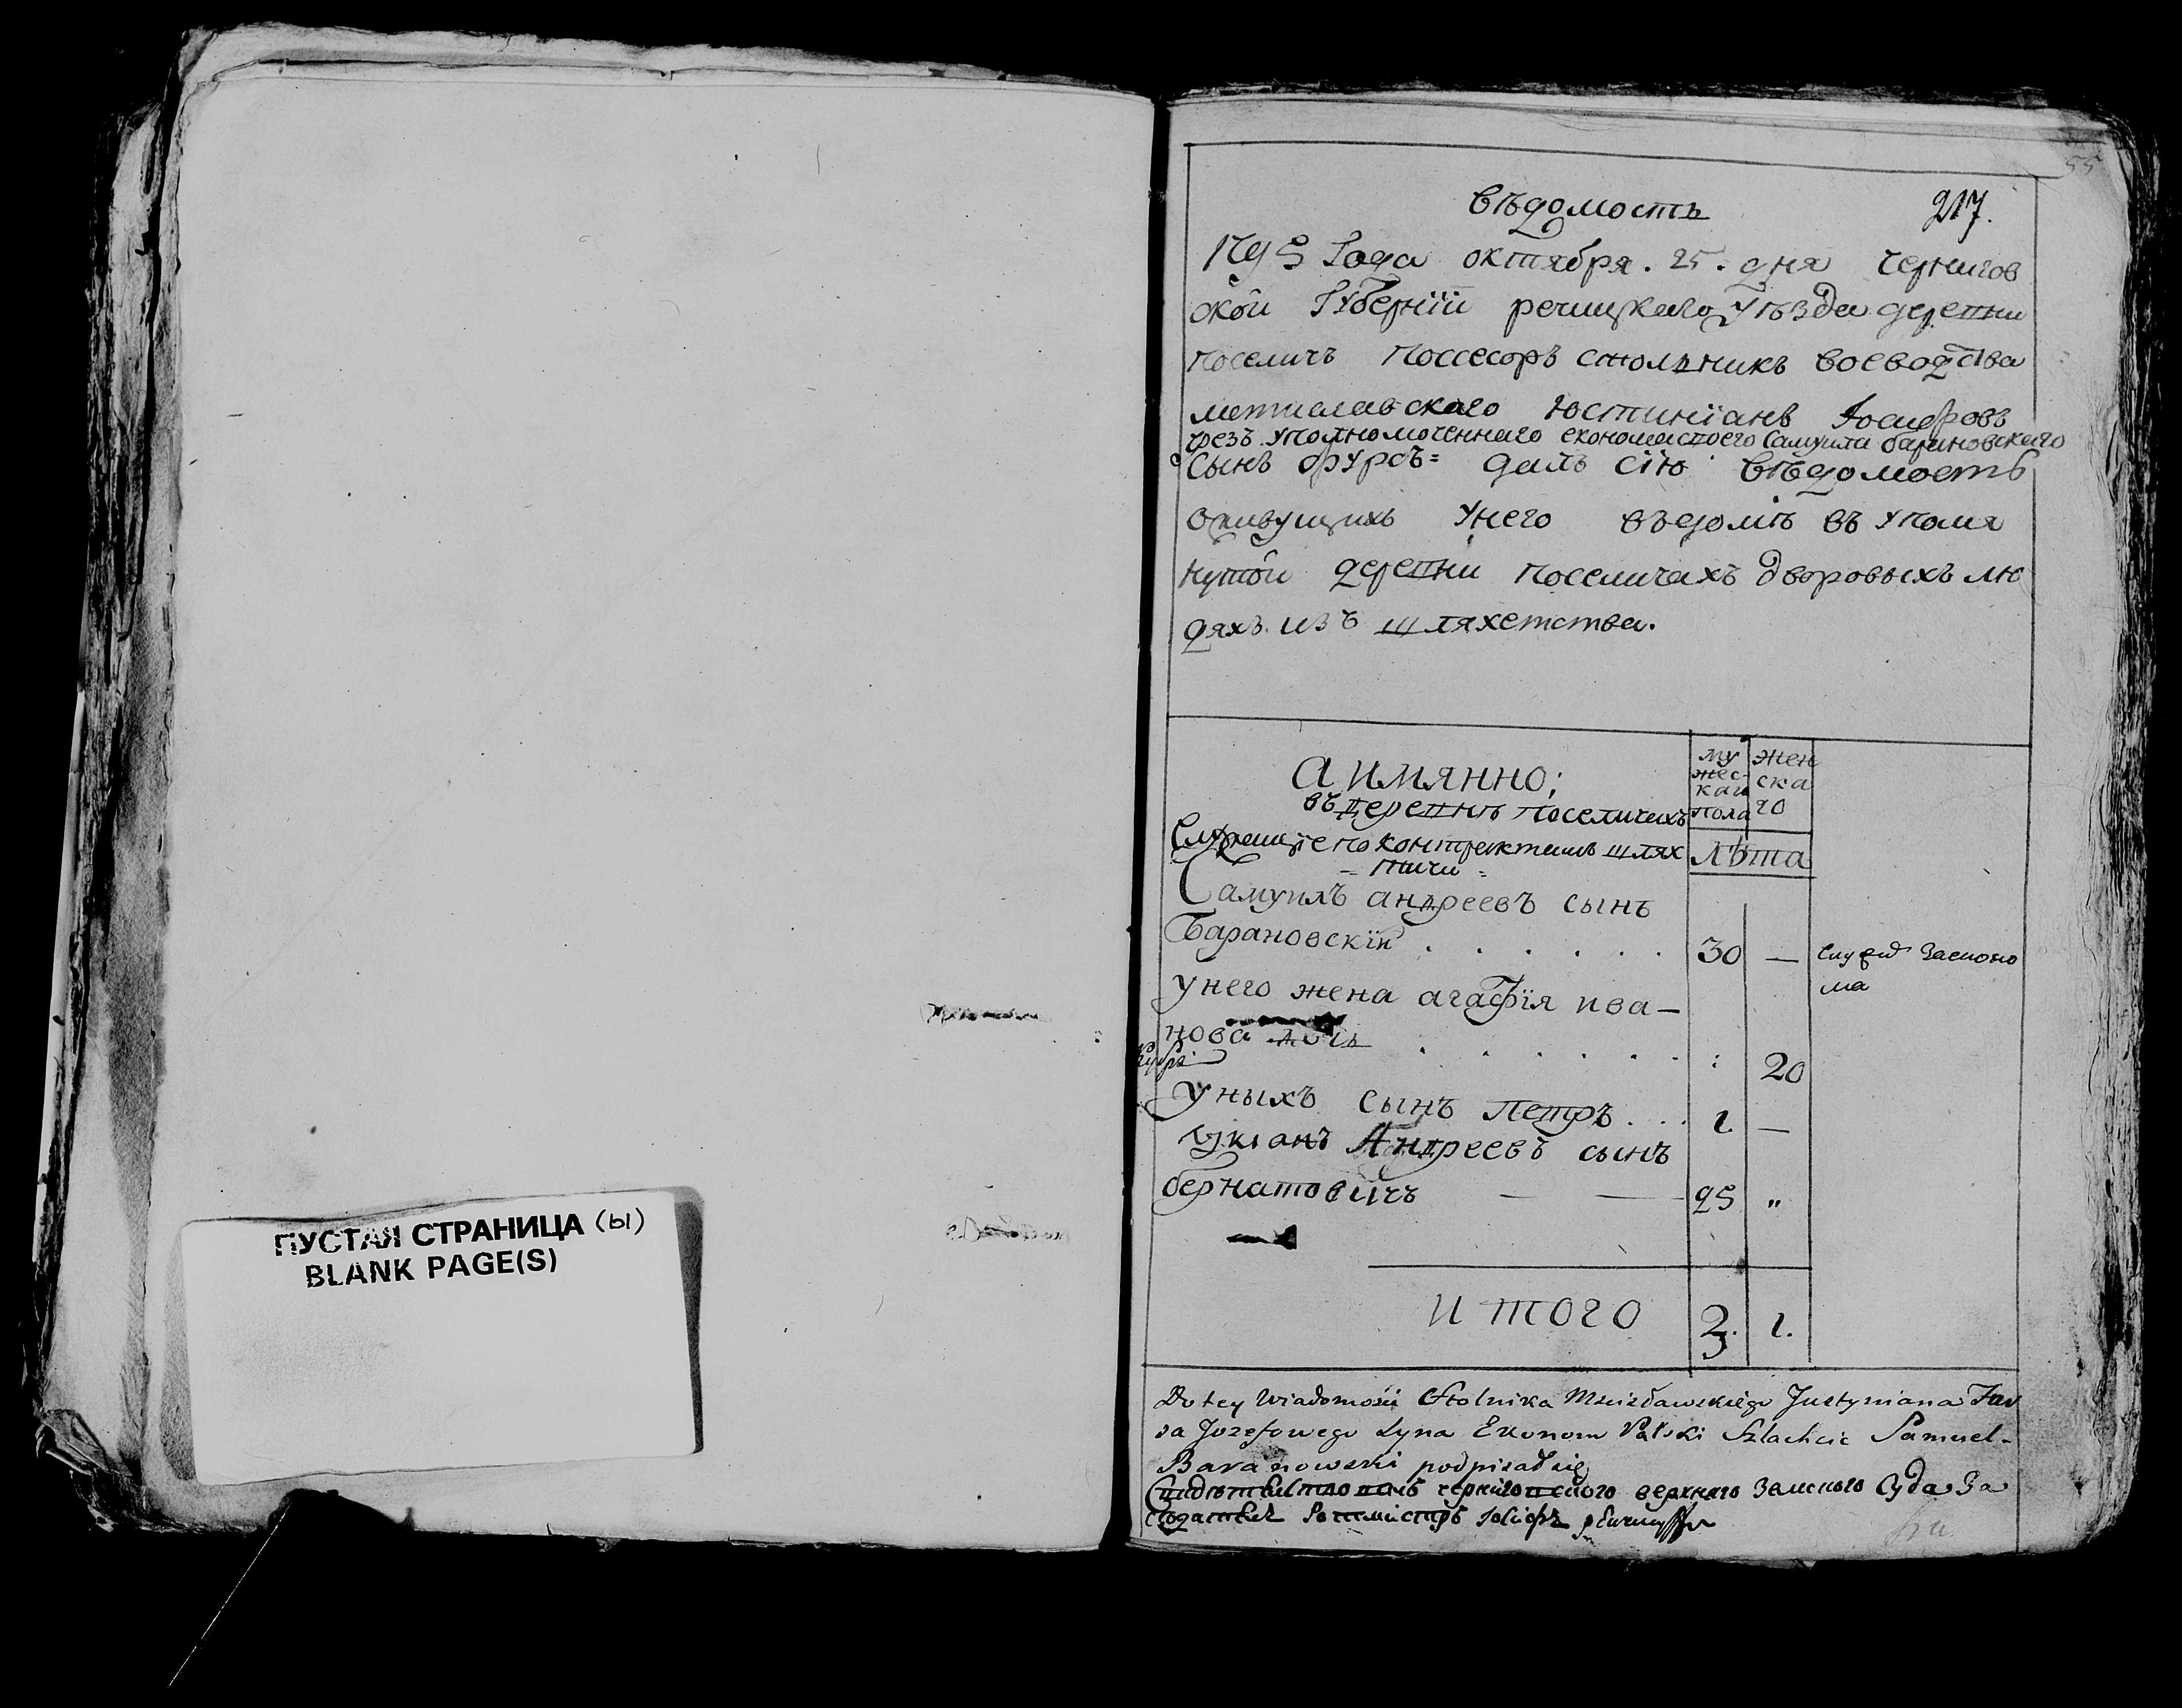 ПУСТАЯ СТРАНИЦА (Ы)
BLANK PAGE(S)
55
вѣдомость 217.
1795 Года октября. 25. дня чернигов
ской Губернїи речицкаго уѣзда деревни
поселичъ поссесоръ стольникъ воеводства
мстиславскаго юстинїанъ Іосифовъ
чрезъ уполномоченнаго економа своего Самуила барановскаго
сынъ фурсъ= далъ сїю вѣдомость
о живущихъ у него въ домѣ въ упомя
нутой деревни поселичахъ дворовыхъ лю
дяхъ изъ шляхетства.
а имянно;
въ деревнѣ поселичахъ
Служащїе по контрактамъ шлях
= тичи =
му
жес-
каго
пола
жен
ска
го
лѣта
Самуилъ андреевъ сынъ
Барановскїй . . . . . . 30 —
служит за еконо
ма
у него жена агафїя ива-
нова дочь . . . . . . : 20
у ныхъ сынъ Петръ . . . 1. —
лукіанъ Андреевъ сынъ
бернатовичъ — — 25 "
итого 3. 1.
Do tey Wiadomości Stolnika Mścisławskiego Justyniana Fur
sa Jozefowego syna Ekonom Szlachcic Samuel-
Baranowski podpisał się
Свидѣтельствовалъ черниговского верхнего Земского Суда За
седатель Ротмистръ Іосифъ